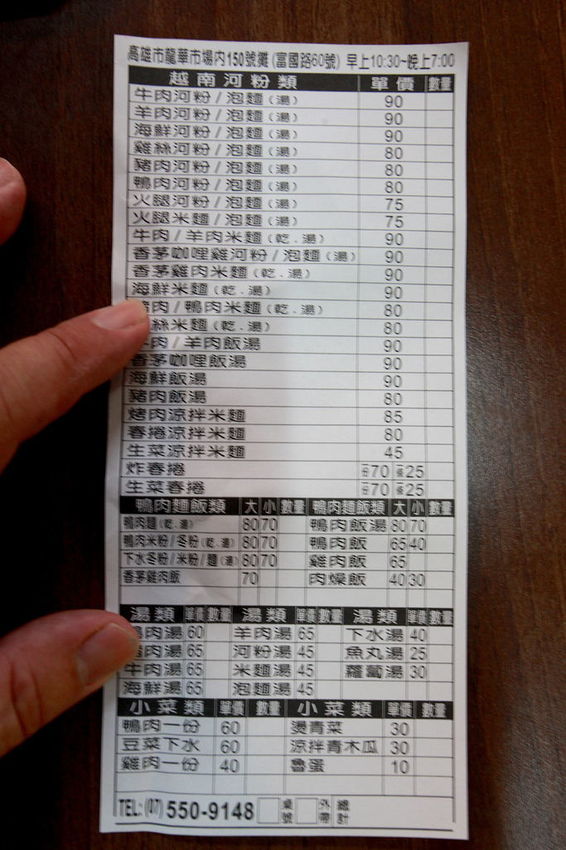 高雄市龍華市場內150號攤(富國路60號) 早上10:30~晚上7:00
越南河粉類 單價 數量
牛肉河粉/泡麵(湯) 90
羊肉河粉/泡麵(湯) 90
海鮮河粉/泡麵(湯) 90
雞絲河粉/泡麵(湯) 80
豬肉河粉/泡麵(湯) 80
鴨肉河粉/泡麵(湯) 80
火腿河粉/泡麵(湯) 75
火腿米麵/泡麵(湯) 75
牛肉/羊肉米麵(乾.湯) 90
香茅咖哩雞河粉/泡麵(湯) 90
香茅雞肉米麵(乾.湯) 90
海鮮米麵(乾.湯) 90
豬肉/鴨肉米麵(乾.湯) 80
絲米麵(乾.湯) 80
牛肉/羊肉飯湯 90
香茅咖哩飯湯 90
海鮮飯湯 90
豬肉飯湯 80
烤肉涼拌米麵 85
春捲涼拌米麵 80
生菜涼拌米麵 45
炸春捲 70 25
生菜春捲 70 25
鴨肉麵飯類 大 小 數量 鴨肉麵飯類 大 小 數量
鴨肉麵(乾.湯) 80 70 鴨肉飯湯 80 70
鴨肉米粉/冬粉(乾.湯) 80 70 鴨肉飯 65 40
下水冬粉/米粉/麵(湯) 80 70 雞肉飯 65
香茅雞肉飯 70 肉燥飯 40 30
湯類 單價 數量 湯類 單價 數量 湯類 單價 數量
鴨肉湯 60 羊肉湯 65 下水湯 40
豬肉湯 65 河粉湯 45 魚丸湯 25
牛肉湯 65 米麵湯 45 蘿蔔湯 30
海鮮湯 65 泡麵湯 45
小菜類 單價 數量 小菜類 單價 數量
鴨肉一份 60 燙青菜 30
豆菜下水 60 涼拌青木瓜 30
雞肉一份 40 魯蛋 10
TEL:(07)550-9148 桌號 外帶 總計